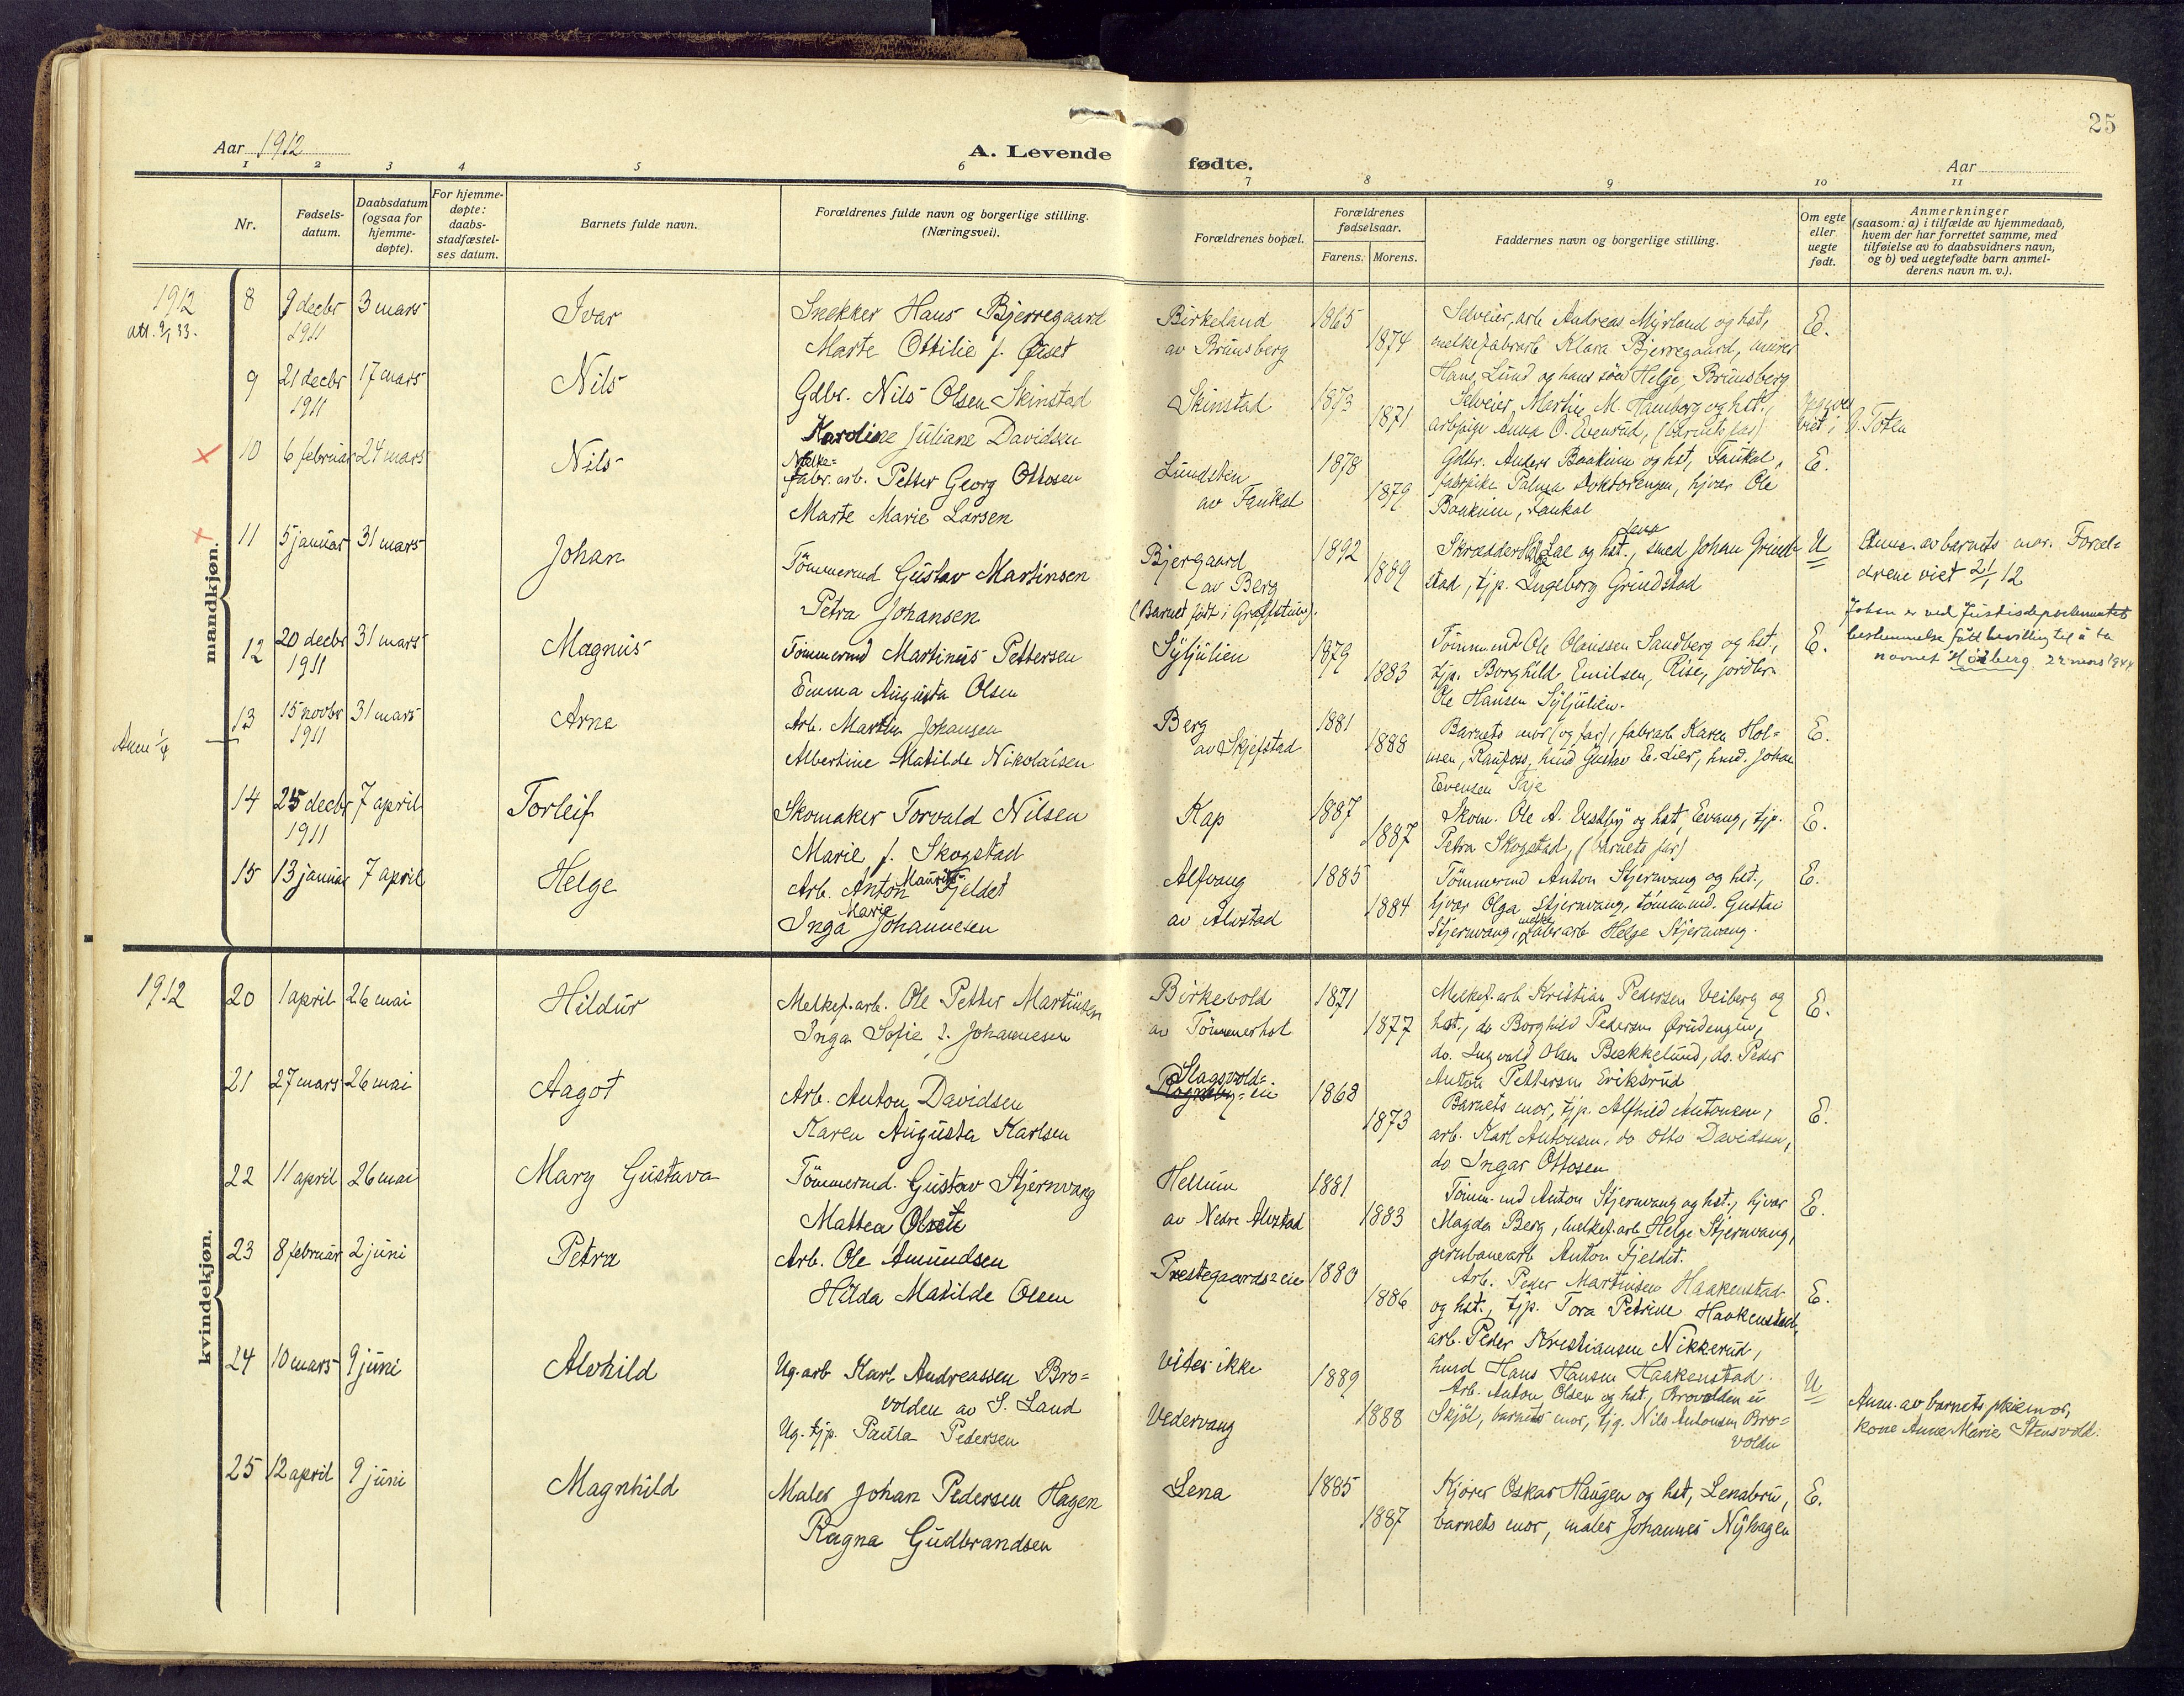 25
Aar 1912
A. Levende fødte.
Aar
1 2 3 4 5 6 7 8 9 10 11
Nr.
Fødsels-datum.
Daabsdatum (ogsaa for hjemme-døpte).
For hjemme-døpte: daabs-stadfæstel-ses datum.
Barnets fulde navn.
Forældrenes fulde navn og borgerlige stilling. (Næringsvei).
Forældrenes bopæl.
Forældrenes fødselsaar.
Farens. Morens.
Faddernes navn og borgerlige stilling.
Om egte eller uegte født.
Anmerkninger (saasom: a) i tilfælde av hjemmedaab, hvem der har forrettet samme, med tilføielse av to daabsvidners navn, og b) ved uegtefødte barn anmel-derens navn m. v.).
mandkjøn.
1912
att. 9/1 33.
8 9 decbr 1911 3 mars Ivar
Snekker Hans Bjerregaard
Marte Ottilie f. Øiset
Birkeland
av Brunsberg
1865 1874
Selveier, arb. Andreas Myrland og hst,
melkefabrarb Klara Bjerregaard, murer
Hans Lund og hans søn Helge, Brunsberg
E.
9 21 decbr 1911 17 mars Nils
Gdbr. Nils Olsen Skinstad
Karoline Juliane Davidsen
Skinstad
1873 1871
Selveier, Martin M. Hamborg og hst.,
arbpige Anna O. Evenrud, (barnets far)
viet i V. Toten
10 6 februar 24 mars Nils
Melke=
fabr. arb. Petter Georg Ottosen
Marte Marie Larsen
Lundsten
av Faukal
1878 1879
Gdbr. Anders Baakinn og hst, Faukal,
fabrpike Palma Doktorengen, hjvær Ole
Baakinn, Faukal
E.
11 5 januar 31 mars Johan
Tömmermd Gustav Martinsen
Petra Johansen
Bjergaard
av Berg
(Barnet født i Graffstuen).
1892 1889
Skrædder Lae og hst., smed Johan Grind-
stad, tjp. Ingeborg Grindstad
U
Anm. av barnets mor. Foræl-
drene viet 21/1 12
Johan er ved Justisdepartementets
bestemmelse fått bevilling til å ta
navnet Høiberg 22 mars 1944
12 20 decbr 1911 31 mars Magnus
Tömmermd Martinus Pettersen
Emma Augusta Olsen
Syljulien
1879 1883
Tömmermd Ole Olaussen Sandberg og hst,
tjp. Borghild Emilsen, Rise, jordbr.
Ole Hansen Syljulien.
E.
Anm 1/4
13 15 novbr 1911 31 mars Arne
Arb. Martin Johansen
Albertine Matilde Nikolaisen
Berg
av Skjefstad
1881 1888
Barnets mor (og far), fabrarb Karen Hol=
men, Raufoss, hmd Gustav E. Lier, hmd. Johan
Evensen Faje
E.
14 25 decbr 1911 7 april Torleif
Skomaker Torvald Nilsen
Marie f. Skogstad
Kap
1887 1887
Skom. Ole A. Vestby og hst, Evang, tjp.
Petra Skogstad, (barnets far)
E.
15 13 januar 7 april Helge
Arb. Anton Maurits Fjeldet
Inga Marie Johannesen
Alfvang
av Alvstad
1885 1884
Tömmermd Anton Stjernvang og hst.,
hjvær Olga Stjernvang, tömmermd. Gustav
Stjernvang, melkefabrarb Helge Stjernvang.
E.
kvindekjøn.
1912
20 1 april 26 mai Hildur
Melkef.arb. Ole Petter Martinsen
Inga Sofie f. Johannesen
Birkevold
av Tömmerhol
1871 1877
Melkef.arb Kristian Pedersen Veiberg og
hst., do Borghild Pedersen Ørudengen,
do. Ingvald Olsen Bækkelund, do. Peder
Anton Pettersen Eriksrud
E.
21 27 mars 26 mai Aagot
Arb. Anton Davidsen
Karen Augusta Karlsen
Slagsvold=
eie
1868 1873
Barnets mor, tjp. Alfhild Antonsen,
arb. Karl Antonsen, do Otto Davidsen,
do Ingar Ottosen
E.
22 11 april 26 mai Mary Gustava
Tömmermd. Gustav Stjernvang
Mattea Olsen
Hellum
av Nedre Alvstad
1881 1883
Tömm.md Anton Stjernvang og hst., hjvær
Magda Berg, melkef.arb Helge Stjernvang,
jernbanearb Anton Fjeldet.
E.
23 8 februar 2 juni Petra
Arb. Ole Amundsen
Hilda Matilde Olsen
Prestegaards=eie
1880 1886
Arb. Peder Martinsen Haakenstad
og hst., tjp. Tora Petrine Haakenstad,
arb. Peder Kristiansen Nikkerud,
hmd Hans Hansen Haakenstad.
E.
24 10 mars 9 juni Alvhild
Ug. arb Karl Andreassen Bro=
volden av S. Land
Ug. tjp. Paula Pedersen
Vites ikke
Vedervang
1889 1888
Arb. Anton Olsen og hst, Brovolden u
Skjöl, barnets mor, tjg. Nils Antonsen Bro=
volden
U
Anm. av barnets pleiemor,
kone Anne Marie Stensvold.
25 12 april 9 juni Magnhild
Maler Johan Pedersen Hagen
Ragna Gudbrandsen
Lena
1885 1887
Kjører Oskar Haugen og hst, Lenabru,
barnets mor, maler Johannes Nyhagen
E.